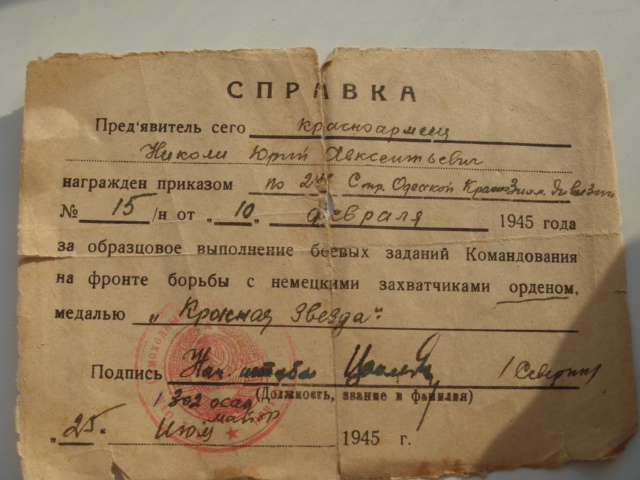 СПРАВКА
Пред'явитель сего красноармеец
Николи Юрий Авксентьевич
награжден приказом по 2ой Стр. Одесской Краснознам. дивизии
№ 15 /н от „10„ февраля 1945 года
за образцовое выполнение боевых заданий Командования
на фронте борьбы с немецкими захватчиками орденом,
медалью „Красная Звезда“.
Подпись Нач. штаба
(Должность, звание и фамилия)
1302 осад майор
„25„ 1945 г.